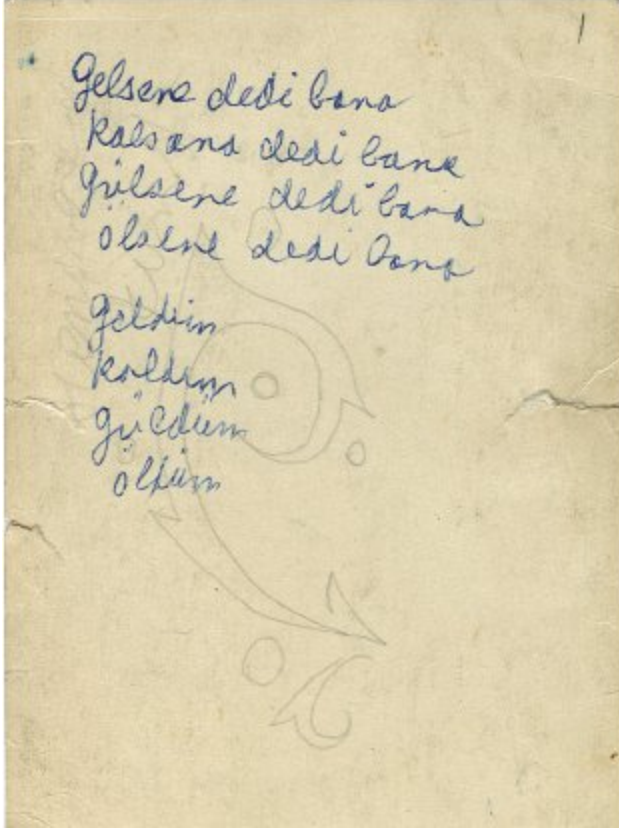 1
Gelsene dedi bana
Kalsana dedi bana
Gülsene dedi bana
ölsene dedi bana
Geldim
Kaldım
Güldüm
öldüm